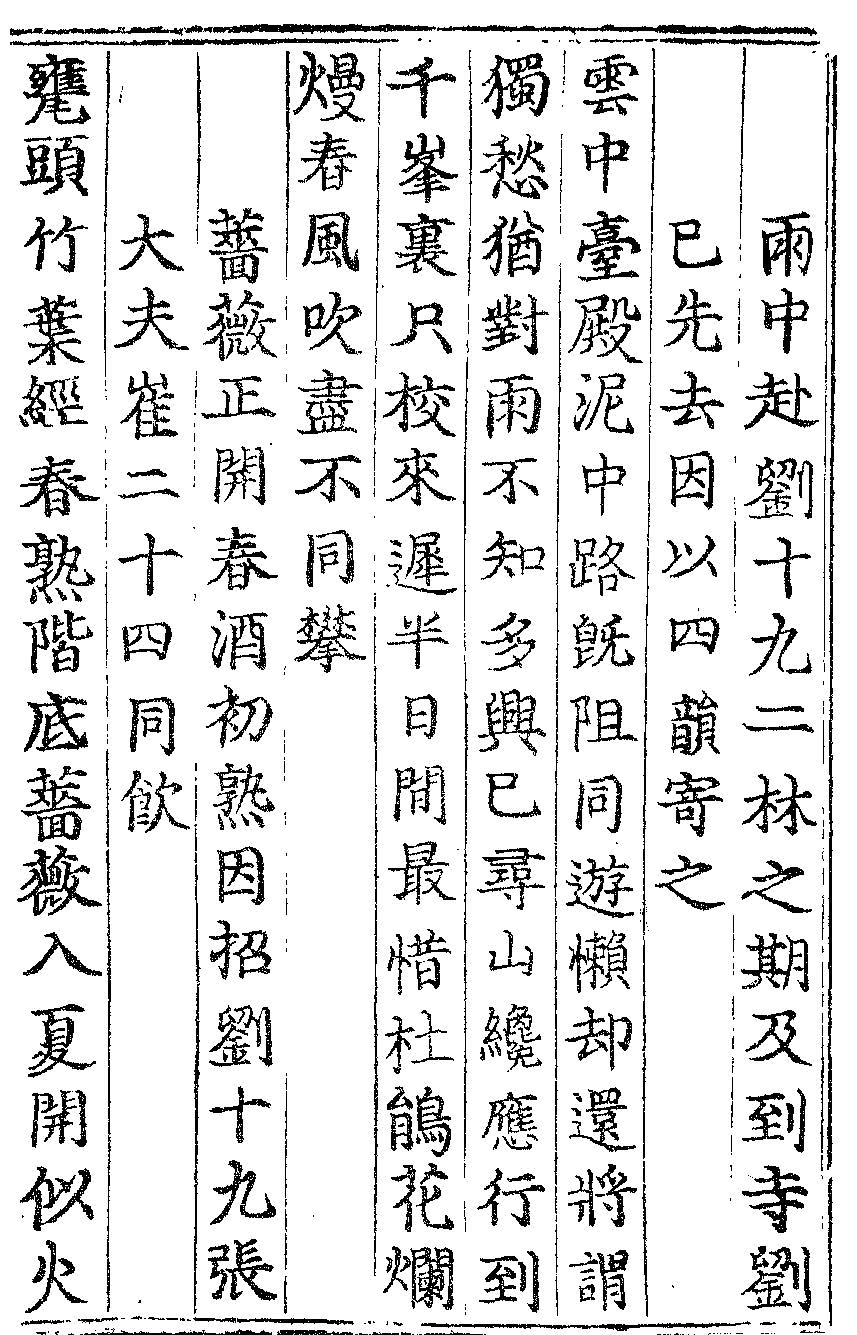 雨中赴劉十九二林之期及到寺劉
已先去因以四韻寄之
雲中臺殿泥中路旣阻同遊懶却還將謂
獨愁猶對雨不知多興已尋山纔應行到
千峯裏只校來遲半日間最惜杜鵑花爛
熳春風吹盡不同攀
薔薇正開春酒初熟因招劉十九張
大夫崔二十四同飮
甕頭竹葉經春熟階底薔薇入夏開似火